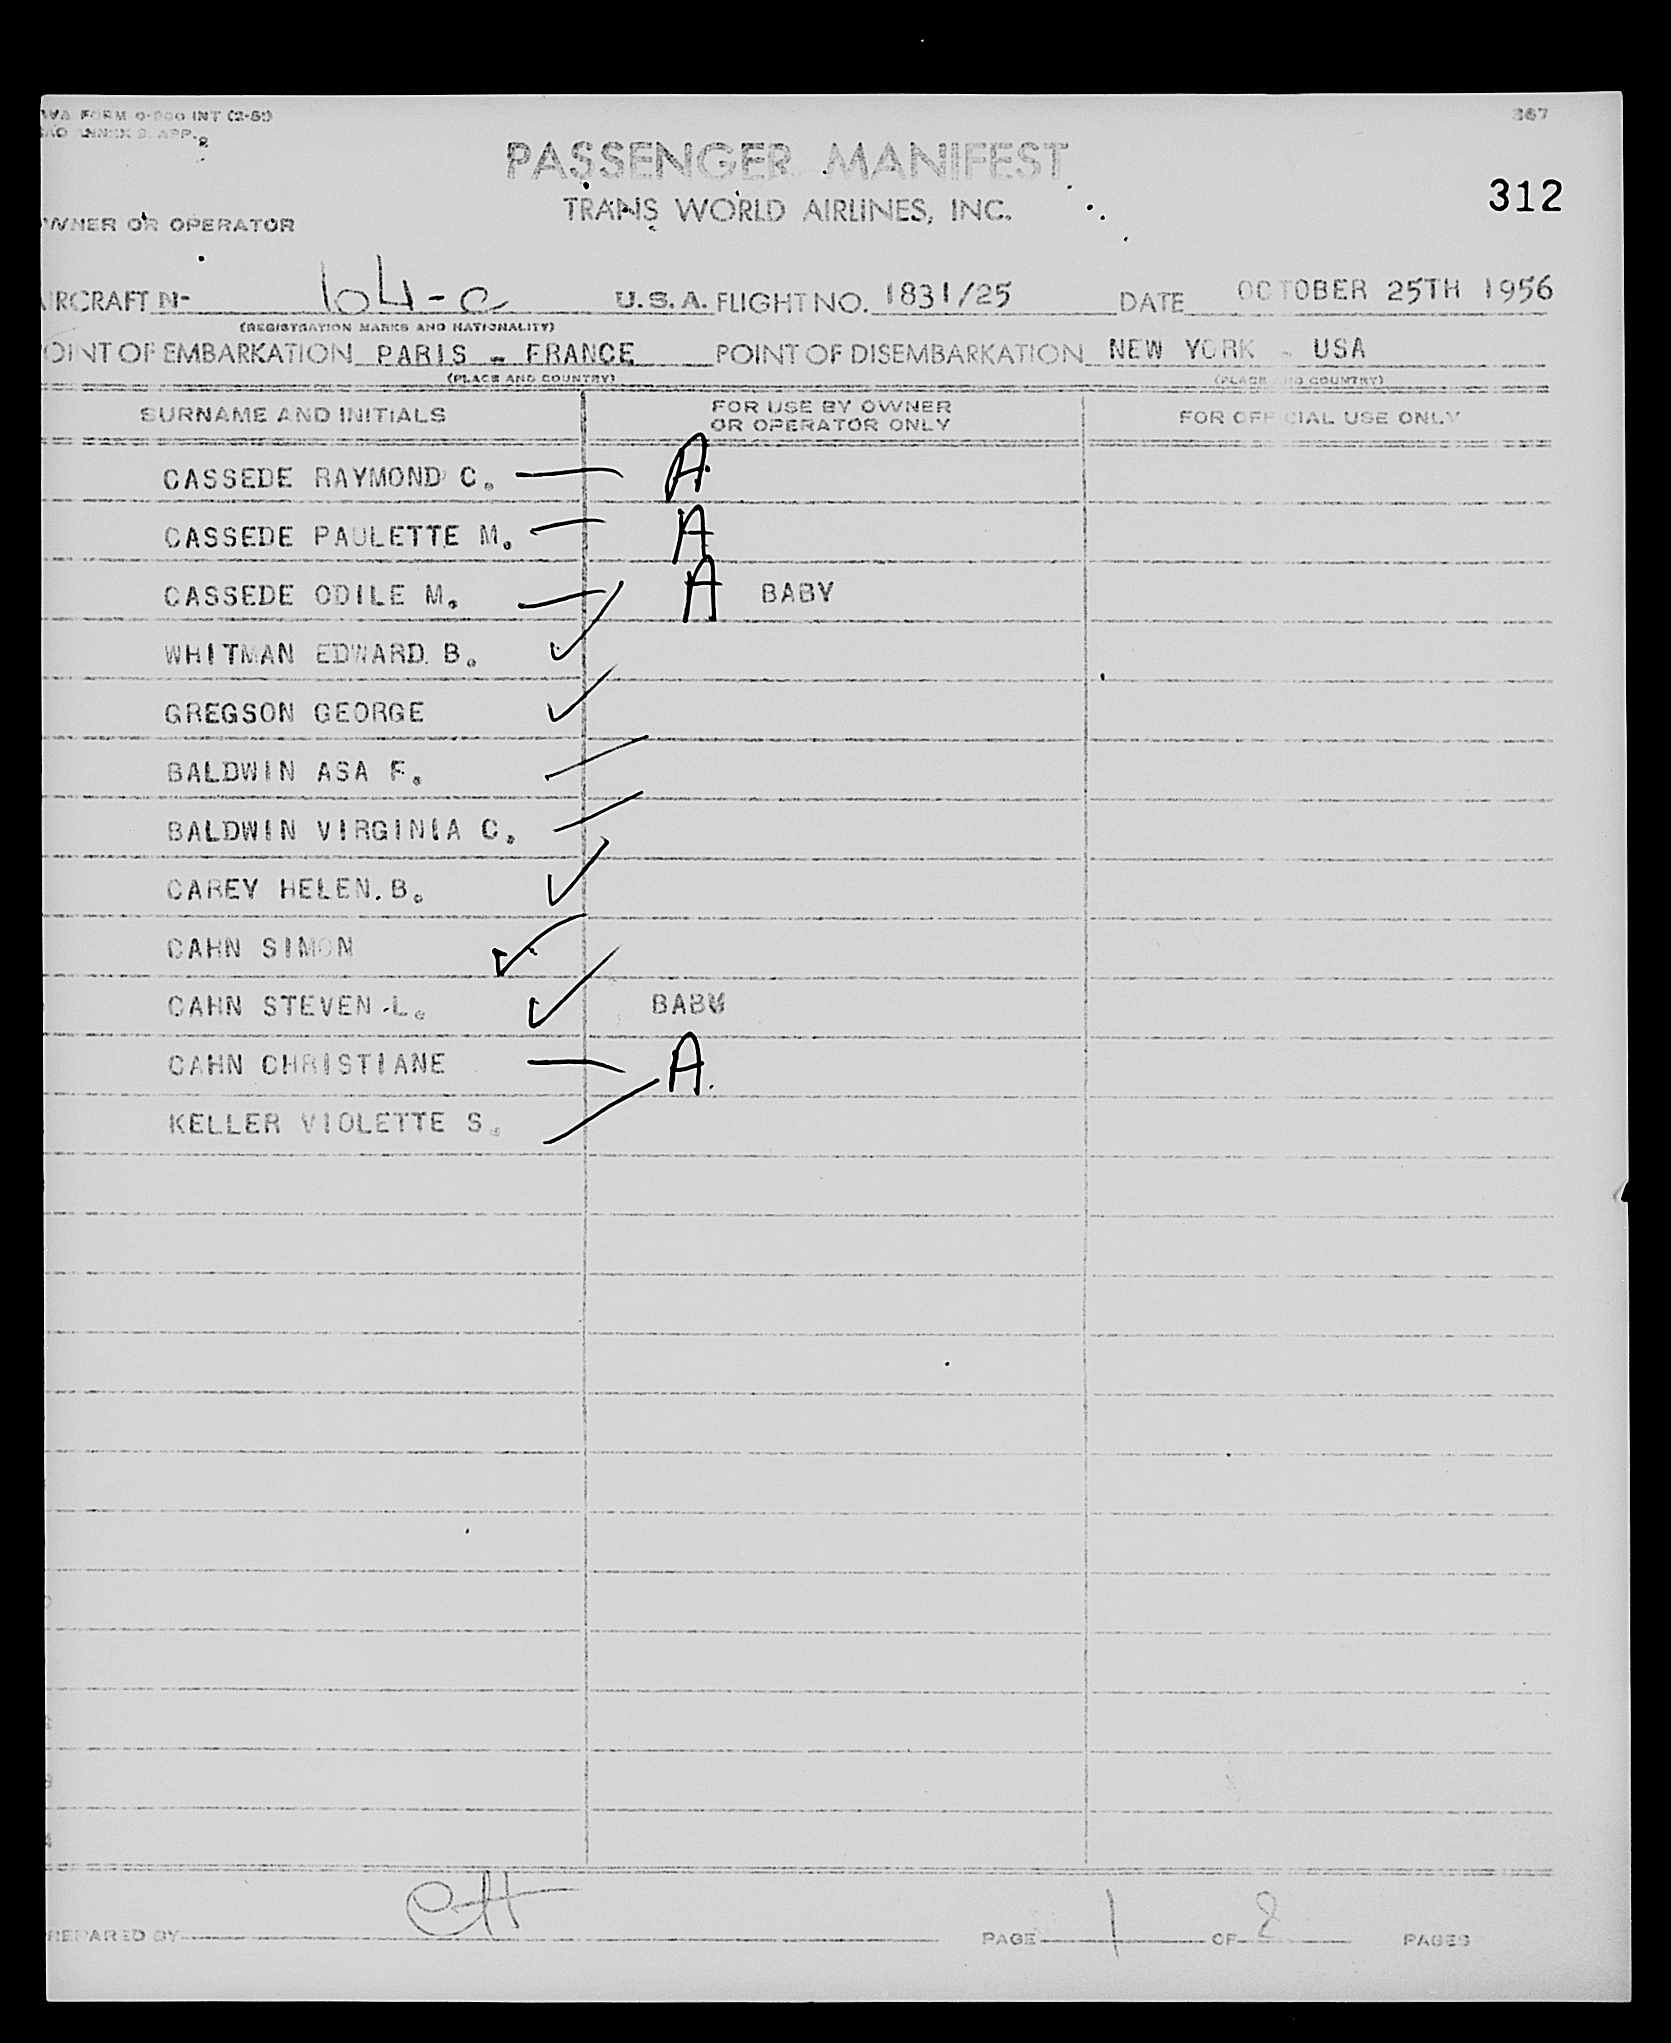 WA FORM 0-200 INT (2-51) 367
ANNEX 9. APP. 2
PASSENGER MANIFEST
312
TRANS WORLD AIRLINES, INC.
WNER OR OPERATOR
IRCRAFT N- 104-C U.S.A. FLIGHT NO. 1831/25 DATE OCTOBER 25TH 1956
(REGISTRATION MARKS AND NATIONALITY)
OINT OF EMBARKATION PARIS - FRANCE POINT OF DISEMBARKATION NEW YORK - USA
(PLACE AND COUNTRY) (PLACE AND COUNTRY)
SURNAME AND INITIALS FOR USE BY OWNER OR OPERATOR ONLY FOR OFFICIAL USE ONLY
CASSEDE RAYMOND C. — A.
CASSEDE PAULETTE M. — A
CASSEDE ODILE M. — A BABY
WHITMAN EDWARD B. ✓
GREGSON GEORGE ✓
BALDWIN ASA F.
BALDWIN VIRGINIA C.
CAREY HELEN.B. ✓
CAHN SIMON ✓
CAHN STEVEN L. ✓ BABY
CAHN CHRISTIANE — A.
KELLER VIOLETTE S.
REPARED BY PAGE 1 OF 2 PAGES